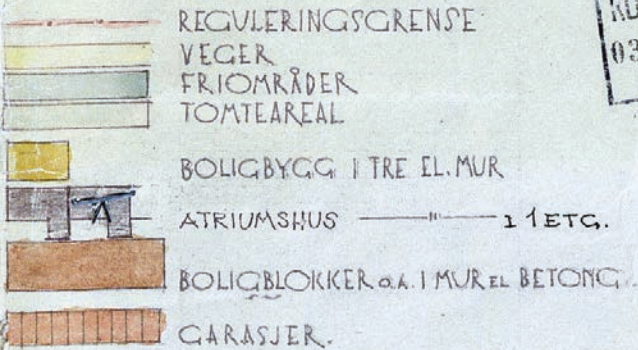 REGULERINGSGRENSE
VEGER
FRIOMRÅDER
TOMTEAREAL
BOLIGBYGG I TRE EL. MUR
ATRIUMSHUS —"— I 1 ETG.
BOLIGBLOKKER O.A. I MUR EL BETONG
GARASJER.
03